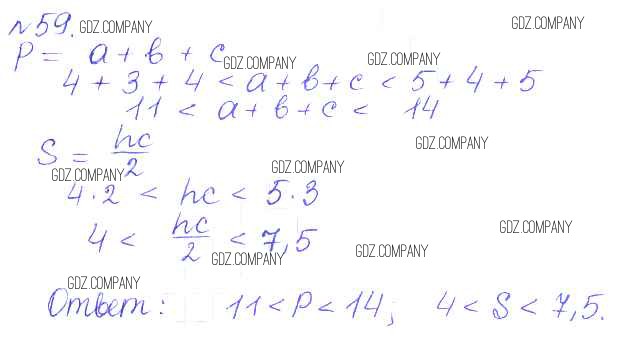 №59. GDZ.COMPANY GDZ.COMPANY
P = a + b + c GDZ.COMPANY GDZ.COMPANY
4 + 3 + 4 < a + b + c < 5 + 4 + 5
11 < a + b + c < 14
GDZ.COMPANY
S = hc/2
GDZ.COMPANY GDZ.COMPANY
4·2 < hc < 5·3
4 < hc/2 < 7,5 GDZ.COMPANY
GDZ.COMPANY GDZ.COMPANY
GDZ.COMPANY
Ответ: 11 < P < 14; 4 < S < 7,5.